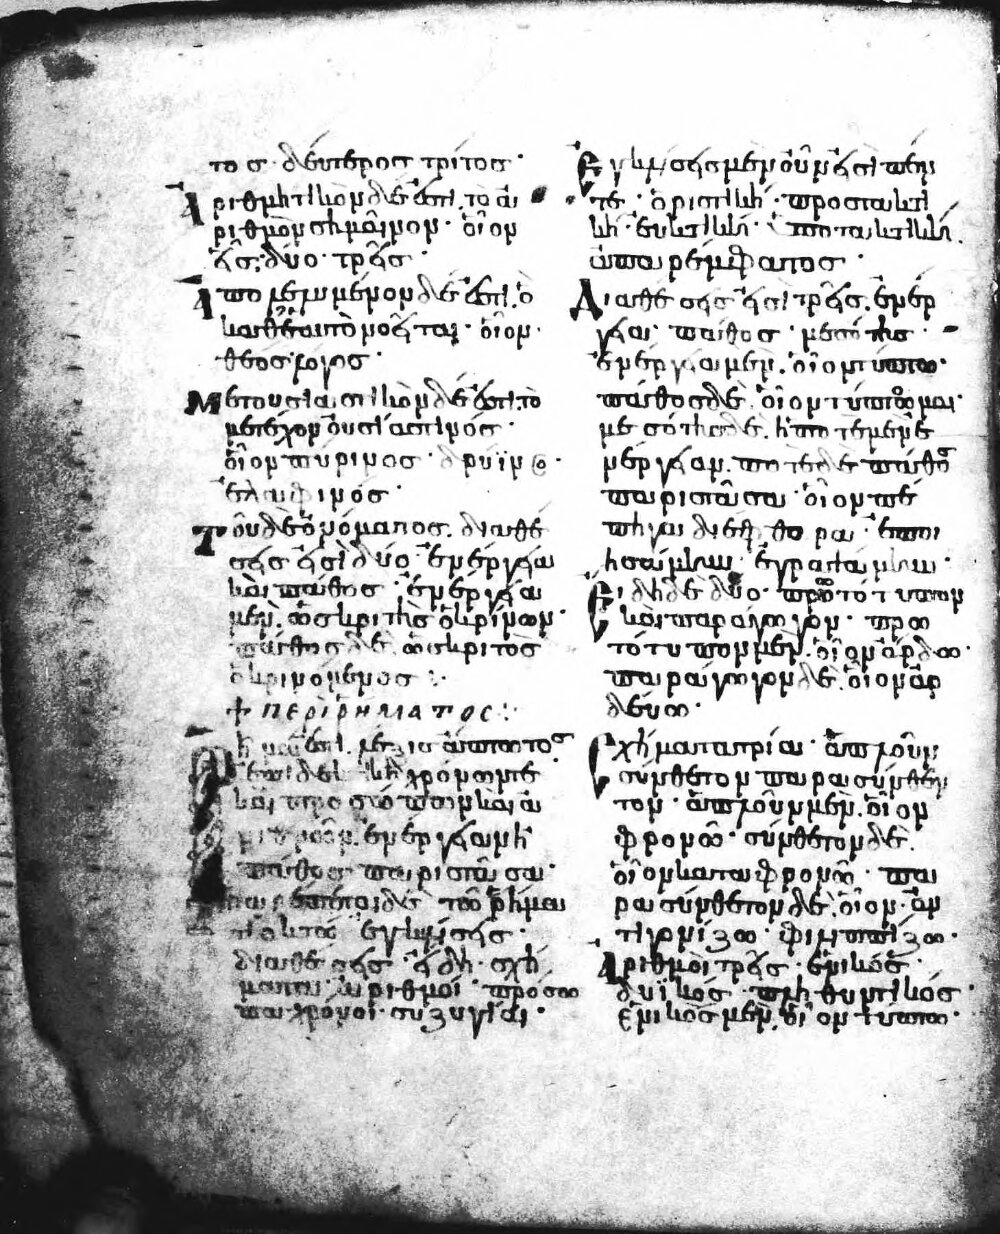 τος· δεύτερος τρίτος·
Ἀριθμητικὸν δέ ἐστι. τὸ ἀ
ριθμὸν σημαῖνον· οἷον
εἷς· δύο· τρεῖς·
Ἀπολελυμένον δέ ἐστι. ὃ
καθ' ἑαυτὸ νοεῖται· οἷον·
θεὸς· λόγος·
Μετουσιαστικὸν δέ ἐστι. τὸ
μετέχον οὐσίας τινός·
οἷον πύρινος· δρύϊνος
ἐλαφινός·
Τοῦ δὲ ὀνόματος. διαθέ
σεις εἰσὶ δύο· ἐνέργεια
καὶ πάθος· ἐνέργεια
μὲν. ὡς κριτὴς ὁ κρίνων·
πάθος δὲ. ὡς κριτὸς
ὁ κρινόμενος :·
+ ΠΕΡῚ ῬΗΜΑΤΟΣ :·
Ῥῆμά ἐστι. λέξις ἄπτωτος
ἐπιδεκτικὴ χρόνων τε
καὶ προσώπων καὶ ἀ
ριθμῶν. ἐνέργειαν ἢ
πάθος παριστᾶσα·
παρέπεται δὲ τῷ ῥήμα
τι ὀκτώ· ἐγκλίσεις·
διαθέσεις· εἴδη· σχή
ματα· ἀριθμοὶ· πρόσω
πα· χρόνοι· συζυγίαι·
Ἐγκλίσεις μὲν οὖν εἰσὶ πέν
τε· ὁριστική· προστακτι
κή· εὐκτική· ὑποτακτική.
ἀπαρέμφατος·
Διαθέσεις εἰσὶ τρεῖς. ἐνέρ
γεια· πάθος· μεσότης·
ἐνέργεια μὲν. οἷον τύπτω·
πάθος δὲ. οἷον τύπτομαι·
μεσότης δὲ. ἡ ποτὲ μὲν ἐ
νέργειαν. ποτὲ δὲ πάθος
παριστᾶσα· οἷον πέ
πηγα διέφθορα· ἐποι
ησάμην· ἐγραψάμην·
Εἴδη δὲ δύο· πρωτότυπον
καὶ παράγωγον· πρω
τότυπον μὲν. οἷον ἄρδω·
παράγωγον δὲ. οἷον ἀρ
δεύω·
Σχήματα τρία· ἁπλοῦν
σύνθετον παρασύνθε
τον· ἁπλοῦν μὲν. οἷον
φρονῶ· σύνθετον δὲ.
οἷον καταφρονῶ· πα
ρασύνθετον δὲ. οἷον· ἀν
τιγονίζω· φιλιππίζω·
Ἀριθμοὶ τρεῖς· ἑνικός·
δυϊκός· πληθυντικός·
ἑνικὸς μὲν. οἷον τύπτω·